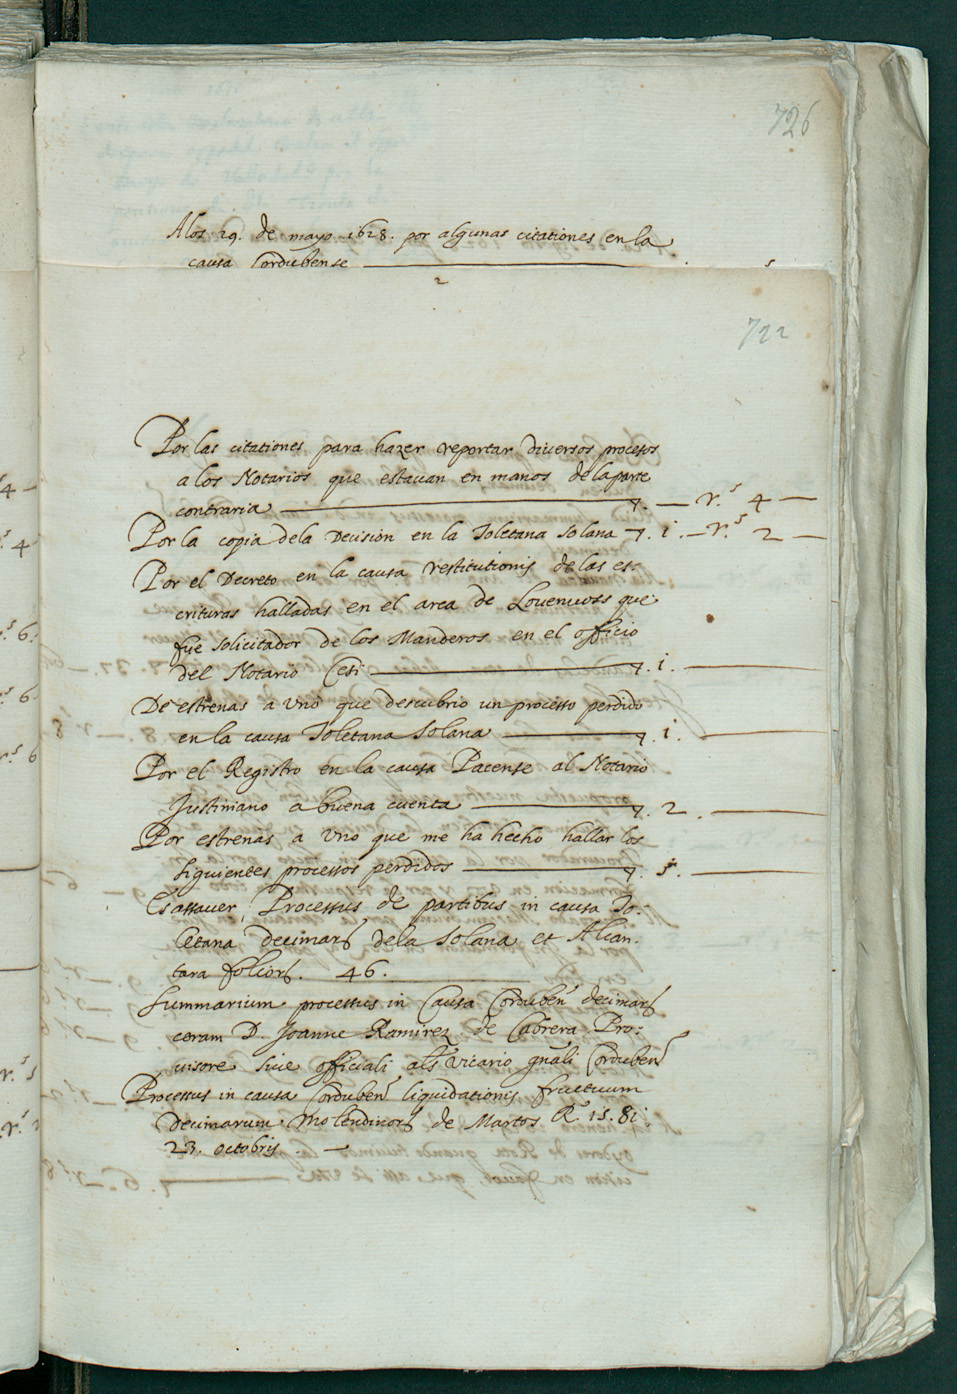 726
Alos 29. de mayo .1628. por algunas citationes en la
causa Cordubense . 5
2
722
Por las citationes para hazer reportar diversos procesos
a los Notarios que estavan en manos dela parte
contraria 7. — r.s 4 —
Por la copia dela Decision en la Toletana Solana 7. i. — r.s 2 —
Por el Decreto en la causa restitutionis de las es-
crituras halladas en el arca de que
fue solicitador de los Manderos en el officio
del Notario Cesi 7. i.
De estrenas a uno que descubrio un processo perdido
en la causa Toletana Solana 7. i.
Por el Registro en la causa Pacense al Notario
Justiniano a buena cuenta 7. 2.
Por estrenas a uno que me ha hecho hallar los
siguientes processos perdidos 7. 5.
Es assaver, Processus de partibus in causa To:
letana decimar dela Solana et Alcan.
tara folior. 46.
Summarium processus in Causa Corduben decimar
coram D. Joanne Ramirez de Cabrera Pro:
uisore siue officiali als vicario gnali Corduben
Processus in causa Corduben liquidationis fructuum
Decimarum molendinor de Martos R. 15. 81:
23. octobris —
4 —
s 4
s 6.
s 6
r.s 6
r.s 5
r.s